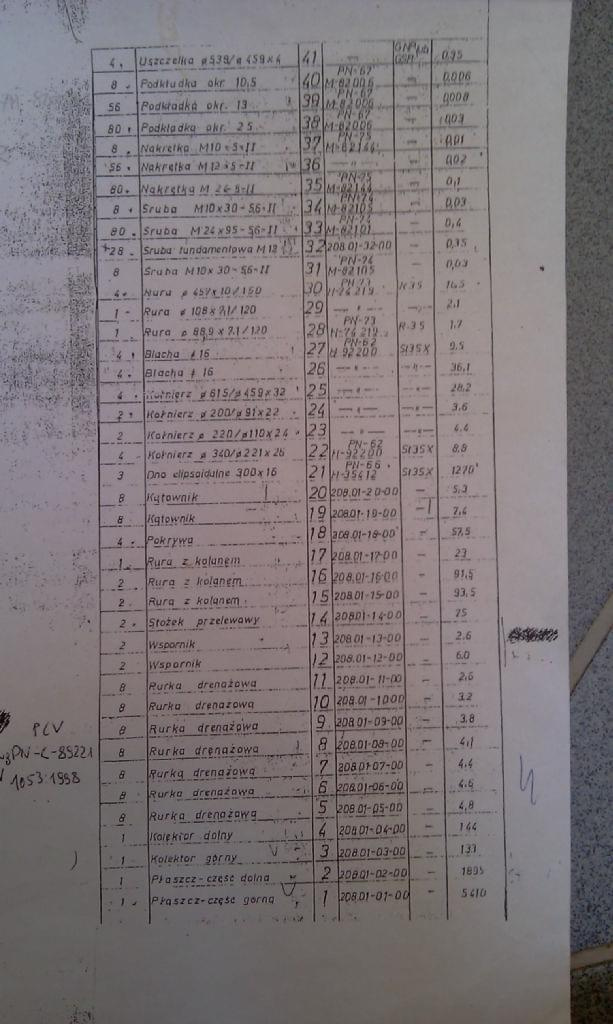 4. Uszczelka ø 539/ø 459×4 41 —"— GUMA 0,95
8 Podkładka okr. 10,5 40 PN-67 M-82006 — 0,006
56 Podkładka okr. 13 39 PN-67 M-82006 — 0,008
80 Podkładka okr. 25 38 PN-67 M-82006 — 0,03
8 Nakrętka M10-5-II 37 PN-75 M-82144 — 0,01
56 Nakrętka M12-5-II 36 —"— 0,02
80 Nakrętka M 24-5-II 35 PN-75 M-82144 — 0,1
8 Śruba M10×30-5,6-II 34 PN-74 M-82105 — 0,03
80 Śruba M24×95-5,6-II 33 M-82101 — 0,4
28 Śruba fundamentowa M12 32 208.01-32-00 — 0,35
8 Śruba M10×30-5,6-II 31 PN-74 M-82105 — 0,03
4 Rura ø 457×10/160 30 PN-73 H-74219 R35
1 Rura ø 108×7,1/120 29 —"— 2,1
1 Rura ø 88,9×7,1/120 28 PN-73 H-74219 R35 1,7
4 Blacha ≠ 16 27 PN-62 H-92200 St35X 9,5
4 Blacha ≠ 16 26 —"— —"— 36,1
4 Kołnierz ø 615/ø 459×32 25 —"— —"— 28,2
2 Kołnierz ø 200/ø 91×22 24 —"— —"— 3,6
2 Kołnierz ø 220/ø110×24 23 —"— —"— 4,4
4 Kołnierz ø 340/ø 221×26 22 PN-62 H-92200 St35X 8,8
3 Dno elipsoidalne 300×16 21 PN-66 H-35412 St35X 1270
8 Kątownik 20 208.01-20-00 — 5,3
8 Kątownik 19 208.01-19-00 — 7,4
4 Pokrywa 18 208.01-18-00 — 57,5
1 Rura z kolanem 17 208.01-17-00 — 23
2 Rura z kolanem 16 208.01-16-00 — 91,5
2 Rura z kolanem 15 208.01-15-00 — 93,5
2 Stożek przelewowy 14 208.01-14-00 — 75
2 Wspornik 13 208.01-13-00 — 2.6
2 Wspornik 12 208.01-12-00 — 6,0
8 Rurka drenażowa 11 208.01-11-00 — 2,6
8 Rurka drenażowa 10 208.01-10-00 — 3.2
8 Rurka drenażowa 9 208.01-09-00 — 3,8
8 Rurka drenażowa 8 208.01-08-00 — 4,1
8 Rurka drenażowa 7 208.01-07-00 — 4.4
8 Rurka drenażowa 6 208.01-06-00 — 4.6
8 Rurka drenażowa 5 208.01-05-00 — 4,8
1 Kolektor dolny 4 208.01-04-00 — 144
1 Kolektor górny 3 208.01-03-00 — 133
1 Płaszcz-część dolna 2 208.01-02-00 — 1895
1 Płaszcz-część górna 1 208.01-01-00 — 5410
PCV
wg PN-C-89221
1053:1998